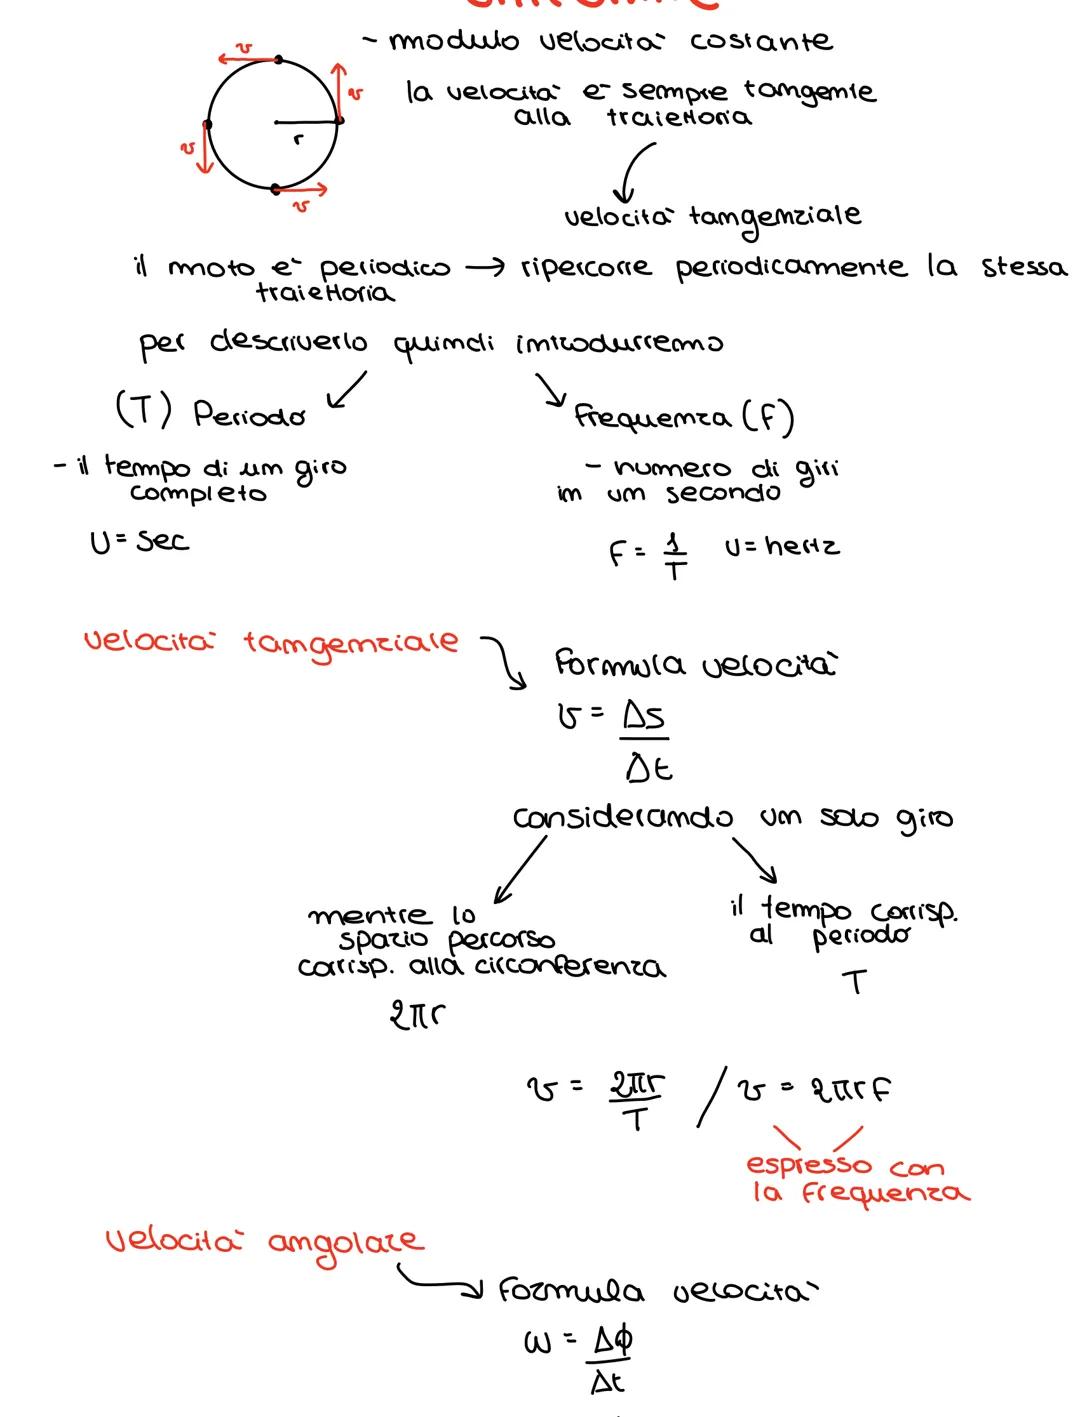 - modulo velocità costante
la velocità è sempre tangente
alla traiettoria
v
v
v
v
r
velocità tangenziale
il moto è periodico → ripercorre periodicamente la stessa
traiettoria
per descriverlo quindi introdurremo
(T) Periodo
Frequenza (F)
- il tempo di un giro
completo
- numero di giri
in un secondo
U = sec
F = 1/T U = hertz
velocità tangenziale
Formula velocità
v = Δs/Δt
considerando un solo giro
mentre lo
spazio percorso
corrisp. alla circonferenza
2πr
il tempo corrisp.
al periodo
T
v = 2πr/T / v = 2πrF
espresso con
la frequenza
velocità angolare
Formula velocità
ω = Δϕ/Δt